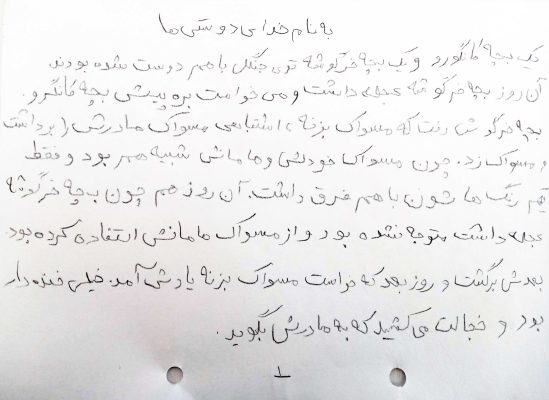 به نام خدای دوستی ها
یک بچه کانگورو و یک بچه خرگوشه توی جنگل با هم دوست شده بودند.
آن روز بچه خرگوشه عجله داشت و می خواست بره پیش بچه کانگرو.
بچه خرگوش رفت که مسواک بزنه، اشتباهی مسواک مادرش را برداشت
و مسواک زد. چون مسواک خودش و مامانش شبیه هم بود و فقط
رنگ ها شون با هم فرق داشت. آن روز هم چون بچه خرگوشه
عجله داشت متوجه نشده بود و از مسواک مامانش استفاده کرده بود.
بعدش برگشت و روز بعد که خواست مسواک بزنه یادش آمد. خیلی خنده دار
بود و خجالت می کشید که به مادرش بگوید.
۱